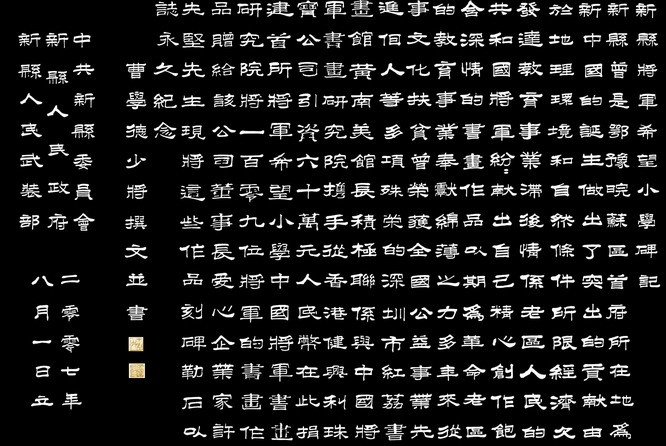 新縣將軍希望小學碑記
新縣曾是鄂豫皖蘇區首府所在地為
新中國的誕生做出了突出的貢獻由
於地理環境和自然條件所限經濟文
發達教育事業滯後情係老區人民的
共和國將軍紛紛獻出自己精心創作飽
含深情的書畫作品以期為革命老區
事的教育事業奉獻綿薄之力多年來從
事文化扶貧曾榮獲全國公益事業先
進個人等多項殊榮深圳市紅荔書
畫館黃南美館長積極聯係與中國將
軍書畫研究院攜手從香港健興利珠
寶公司引資六十萬元人民幣在此捐
建首所將軍希望小學中國將軍書畫
研究院將一百零九位將軍的書畫作
品贈給該公司董事長愛心企業家許
先堅先生現將這些作品刻碑勒石以
誌永久紀念
曹學德少將撰文並書
中共新縣委員會
新縣人民政府
新縣人民武裝部
二零零七年
八月一日立